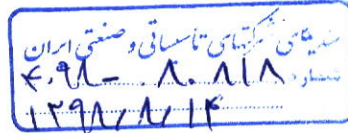 سندیکای شرکتهای تاسیساتی و صنعتی ایران
شماره ۴۰۹۸ – ۸۰۸۱۸
۱۳۹۸/۸/۱۴